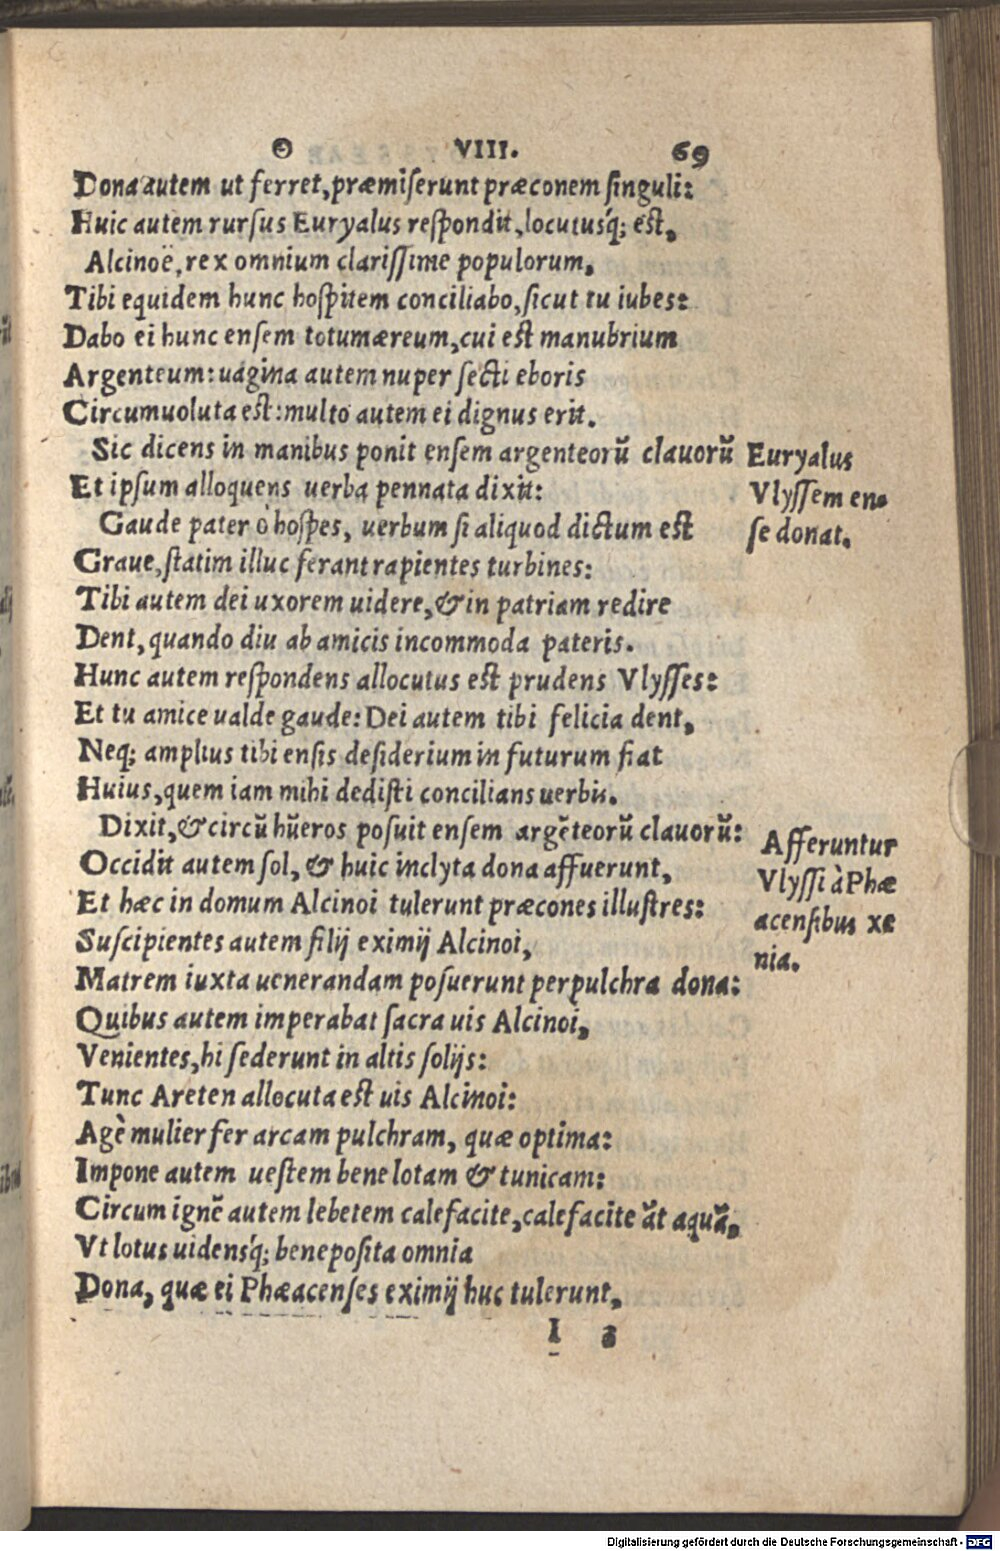 Θ VIII. 69
Dona autem ut ferret, præmiserunt præconem singuli:
Huic autem rursus Euryalus respondit, locutusq́; est,
Alcinoë, rex omnium clarissime populorum,
Tibi equidem hunc hospitem conciliabo, sicut tu iubes:
Dabo ei hunc ensem totum æreum, cui est manubrium
Argenteum: uagina autem nuper secti eboris
Circumuoluta est: multo autem ei dignus erit.
Sic dicens in manibus ponit ensem argenteorū clauorū
Et ipsum alloquens uerba pennata dixit:
Gaude pater ò hospes, uerbum si aliquod dictum est
Graue, statim illuc ferant rapientes turbines:
Tibi autem dei uxorem uidere, & in patriam redire
Dent, quando diu ab amicis incommoda pateris.
Hunc autem respondens allocutus est prudens Vlysses:
Et tu amice ualde gaude: Dei autem tibi felicia dent,
Neq; amplius tibi ensis desiderium in futurum fiat
Huius, quem iam mihi dedisti concilians uerbis.
Dixit, & circū hūeros posuit ensem argēteorū clauorū:
Occidit autem sol, & huic inclyta dona affuerunt,
Et hæc in domum Alcinoi tulerunt præcones illustres:
Suscipientes autem filij eximij Alcinoi,
Matrem iuxta uenerandam posuerunt perpulchra dona:
Quibus autem imperabat sacra uis Alcinoi,
Venientes, hi sederunt in altis solijs:
Tunc Areten allocuta est uis Alcinoi:
Agè mulier fer arcam pulchram, quæ optima:
Impone autem uestem bene lotam & tunicam:
Circum ignē autem lebetem calefacite, calefacite āt aquā,
Vt lotus uidensq́; bene posita omnia
Dona, quæ ei Phæacenses eximij huc tulerunt,
I
Euryalus
Vlyssem en-
se donat.
Afferuntur
Vlyssi à Phæ
acensibus xe
nia.
Digitalisierung gefördert durch die Deutsche Forschungsgemeinschaft - DFG